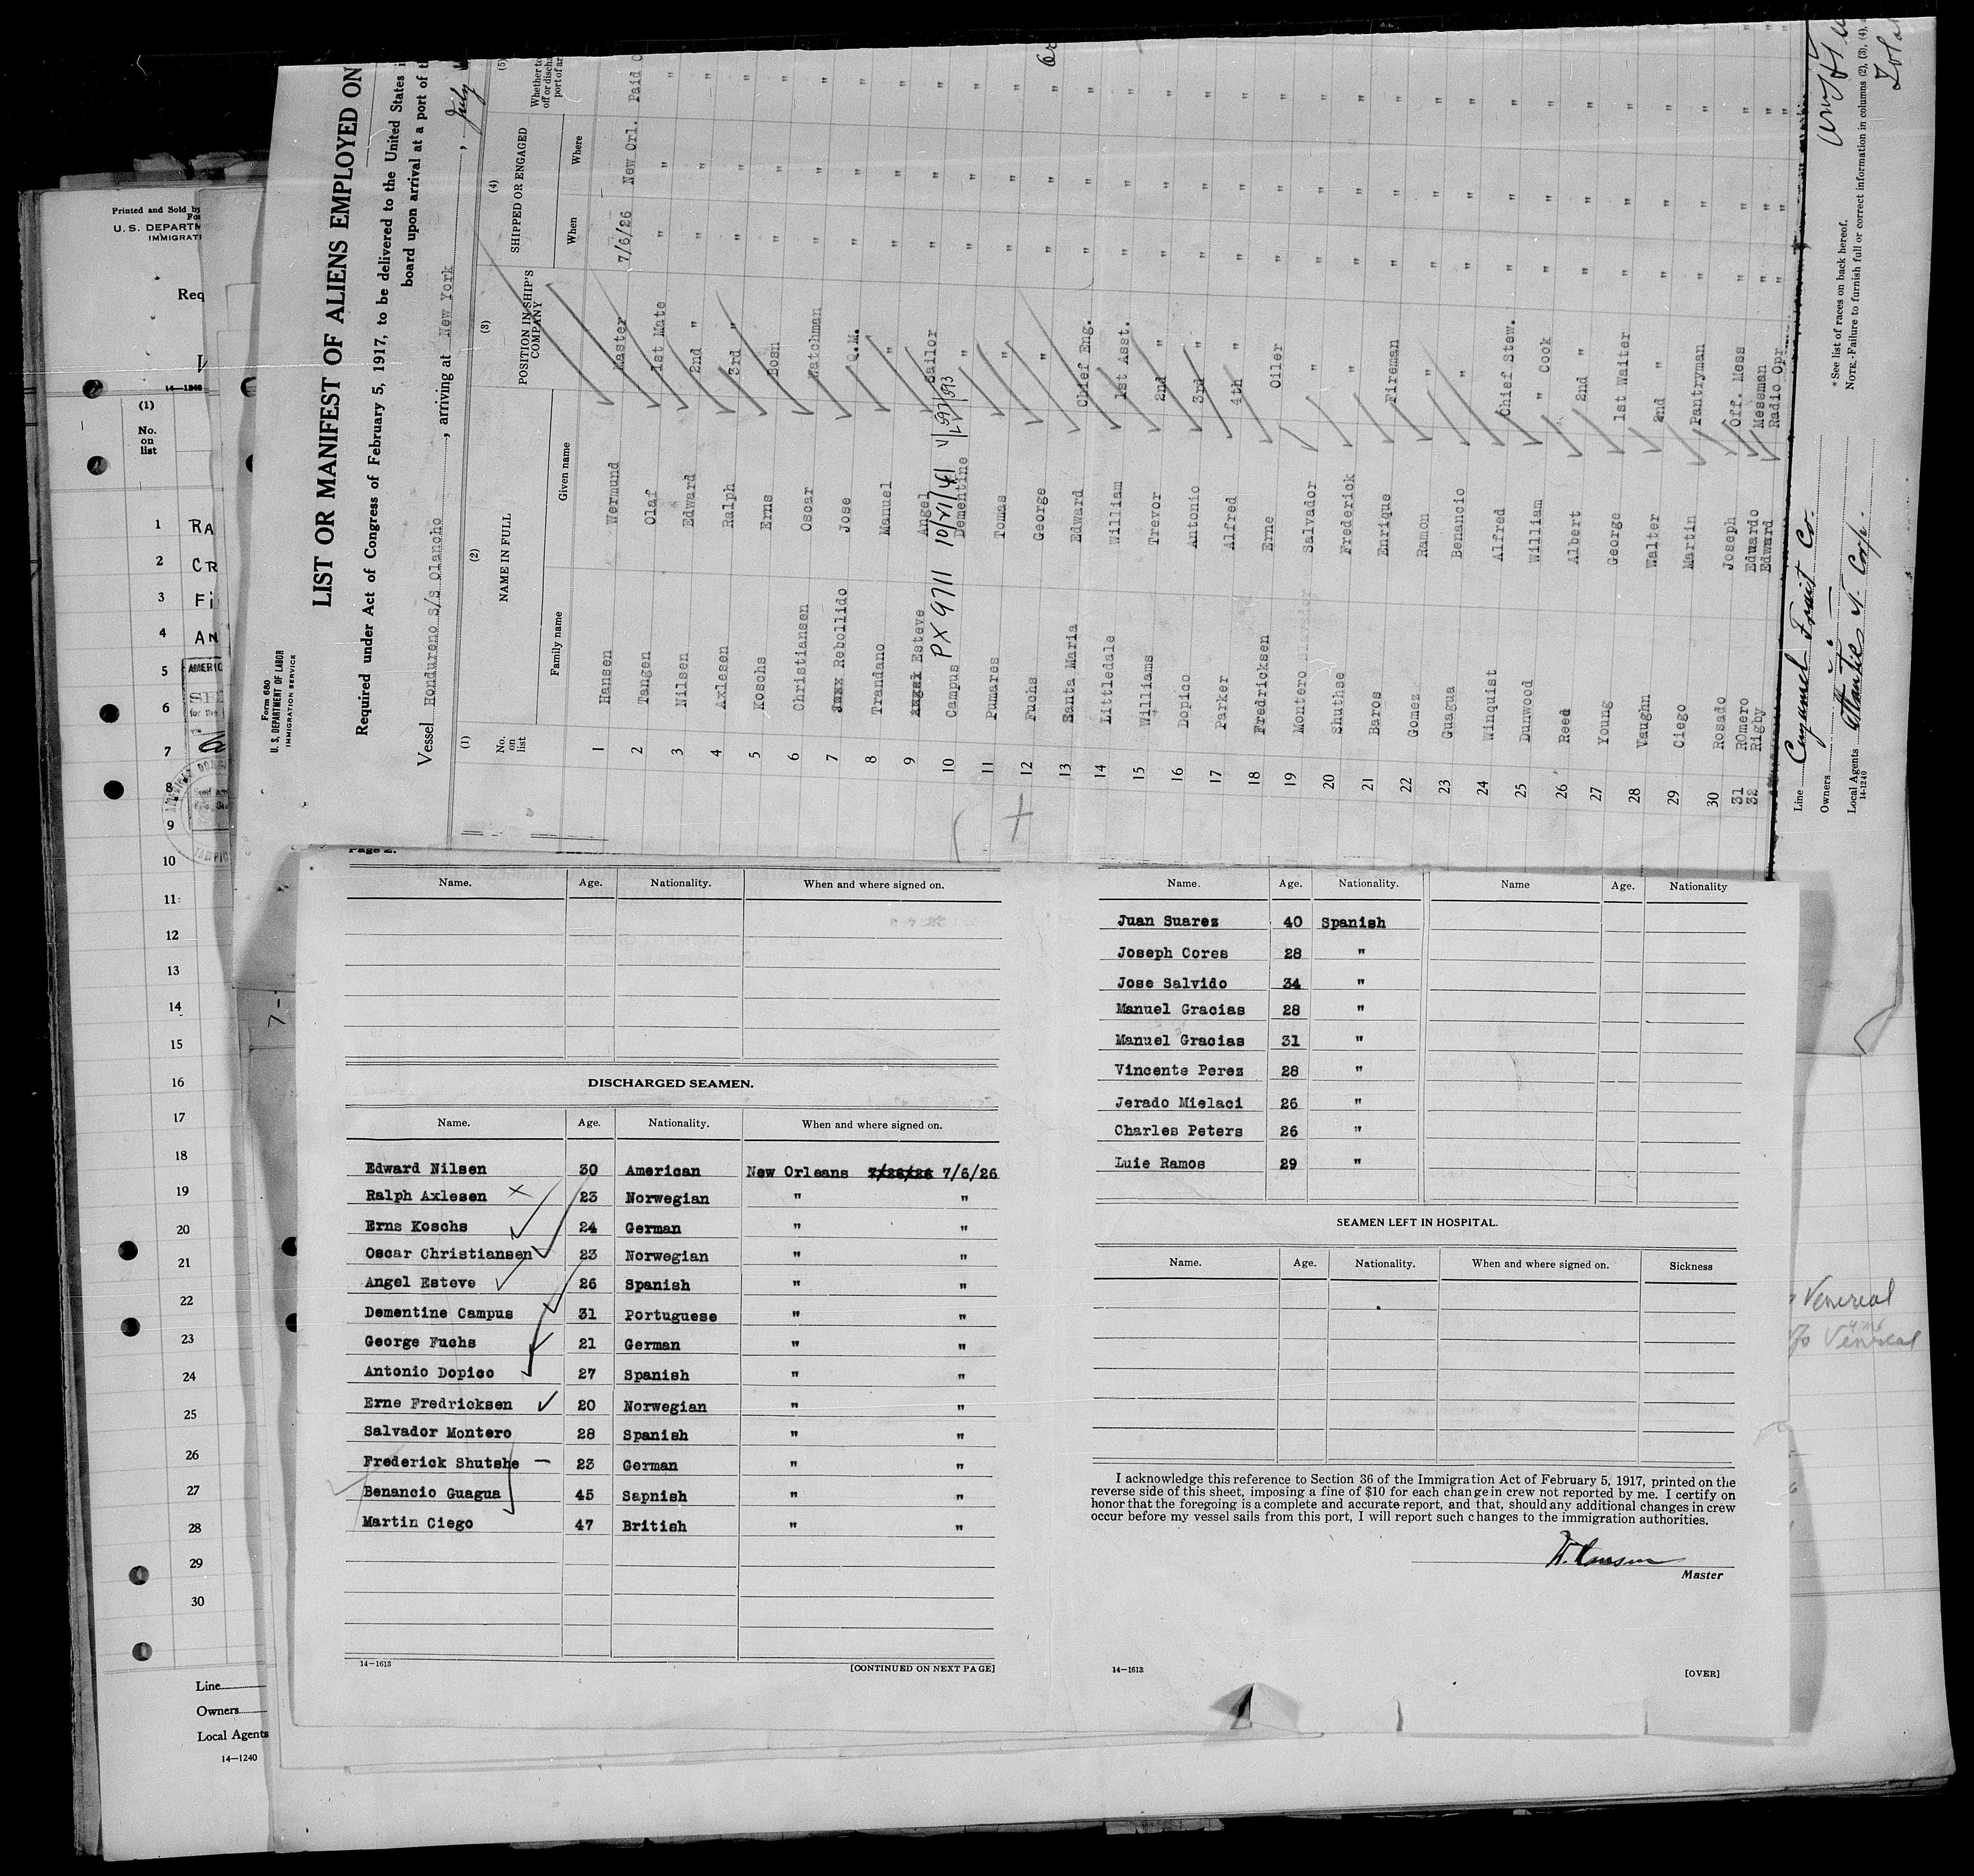 Printed and Sold by
U. S. DEPARTM
IMMIGRATI
Req
14—1240
(1)
No.
on
list
1 RA
2 CR
3 Fi
4 AN
5
6
7
8
9
10
11
12
13
14
15
16
17
18
19
20
21
22
23
24
25
26
27
28
29
30
Line
Owners
Local Agents
14—1240
Form 680
U. S. DEPARTMENT OF LABOR
IMMIGRATION SERVICE
LIST OR MANIFEST OF ALIENS EMPLOYED ON
Required under Act of Congress of February 5, 1917, to be delivered to the United States i
board upon arrival at a port of t
Vessel Hondureno s/s Olancho, arriving at New York, July
(1) (2) (3) (4) (5)
No. on list NAME IN FULL POSITION IN SHIP'S COMPANY SHIPPED OR ENGAGED Whether to
off or disch
port of ar
Family name Given name When Where
1 Hansen Wermund Master 7/6/26 New Orl. Paid O
2 Tangen Olaf 1st Mate " " "
3 Nilsen Edward 2nd " " " "
4 Axlesen Ralph 3rd " " " "
5 Koschs Erns Bosn " " "
6 Christiansen Oscar Watchman " " "
7 Rebollido Jose Q.M. " " "
8 Trandano Manuel " " " "
9 Esteve Angel Sailor " " "
10 Campus Dementine " " " "
PX 9711 10/21/41
11 Pumares Tomas " " " "
12 Fuchs George " " " "
13 Santa Maria Edward Chief Eng. " " "
14 Littledale William 1st Asst. " " "
15 Williams Trevor 2nd " " " "
16 Dopico Antonio 3rd " " " "
17 Parker Alfred 4th " " " "
18 Fredricksen Erne Oiler " " "
19 Montero Salvador " " " "
20 Shuthse Frederick " " " "
21 Baros Enrique Fireman " " "
22 Gomez Ramon " " " "
23 Guagua Benancio " " " "
24 Winquist Alfred Chief Stew. " " "
25 Dunwood William " Cook " " "
26 Reed Albert 2nd " " " "
27 Young George 1st Waiter " " "
28 Vaughn Walter 2nd " " " "
29 Ciego Martin Pantryman " " "
30 Rosado Joseph Off. Mess " " "
31 ROmero Eduardo Messman " " "
32 Rigby Edward Radio Opr " " "
Line Cuyamel Fruit Co.
Owners " " —
Local Agents Atlantic N. Corp.
14-1240
*See list of races on back hereof.
NOTE.-Failure to furnish full or correct information in columns (2), (3), (4),
7-
Page 2.
Name. Age. Nationality. When and where signed on.
DISCHARGED SEAMEN.
Name. Age. Nationality. When and where signed on.
Edward Nilsen 30 American New Orleans 7/26/26 7/6/26
Ralph Axlesen 23 Norwegian " "
Erns Koschs 24 German " "
Oscar Christiansen 23 Norwegian " "
Angel Esteve 26 Spanish " "
Dementine Campus 31 Portuguese " "
George Fuchs 21 German " "
Antonio Dopico 27 Spanish " "
Erne Fredricksen 20 Norwegian " "
Salvador Montero 28 Spanish " "
Frederick Shutshe 23 German " "
Benancio Guagua 45 Sapnish " "
Martin Ciego 47 British " "
14—1613 [CONTINUED ON NEXT PAGE]
Name. Age. Nationality. Name Age. Nationality
Juan Suarez 40 Spanish
Joseph Cores 28 "
Jose Salvido 34 "
Manuel Gracias 28 "
Manuel Gracias 31 "
Vincente Perez 28 "
Jerado Mielaci 26 "
Charles Peters 26 "
Luie Ramos 29 "
SEAMEN LEFT IN HOSPITAL.
Name. Age. Nationality. When and where signed on. Sickness
I acknowledge this reference to Section 36 of the Immigration Act of February 5, 1917, printed on the
reverse side of this sheet, imposing a fine of $10 for each change in crew not reported by me. I certify on
honor that the foregoing is a complete and accurate report, and that, should any additional changes in crew
occur before my vessel sails from this port, I will report such changes to the immigration authorities.
W. Hansen
Master
14—1613 [OVER]
Venereal
Venereal